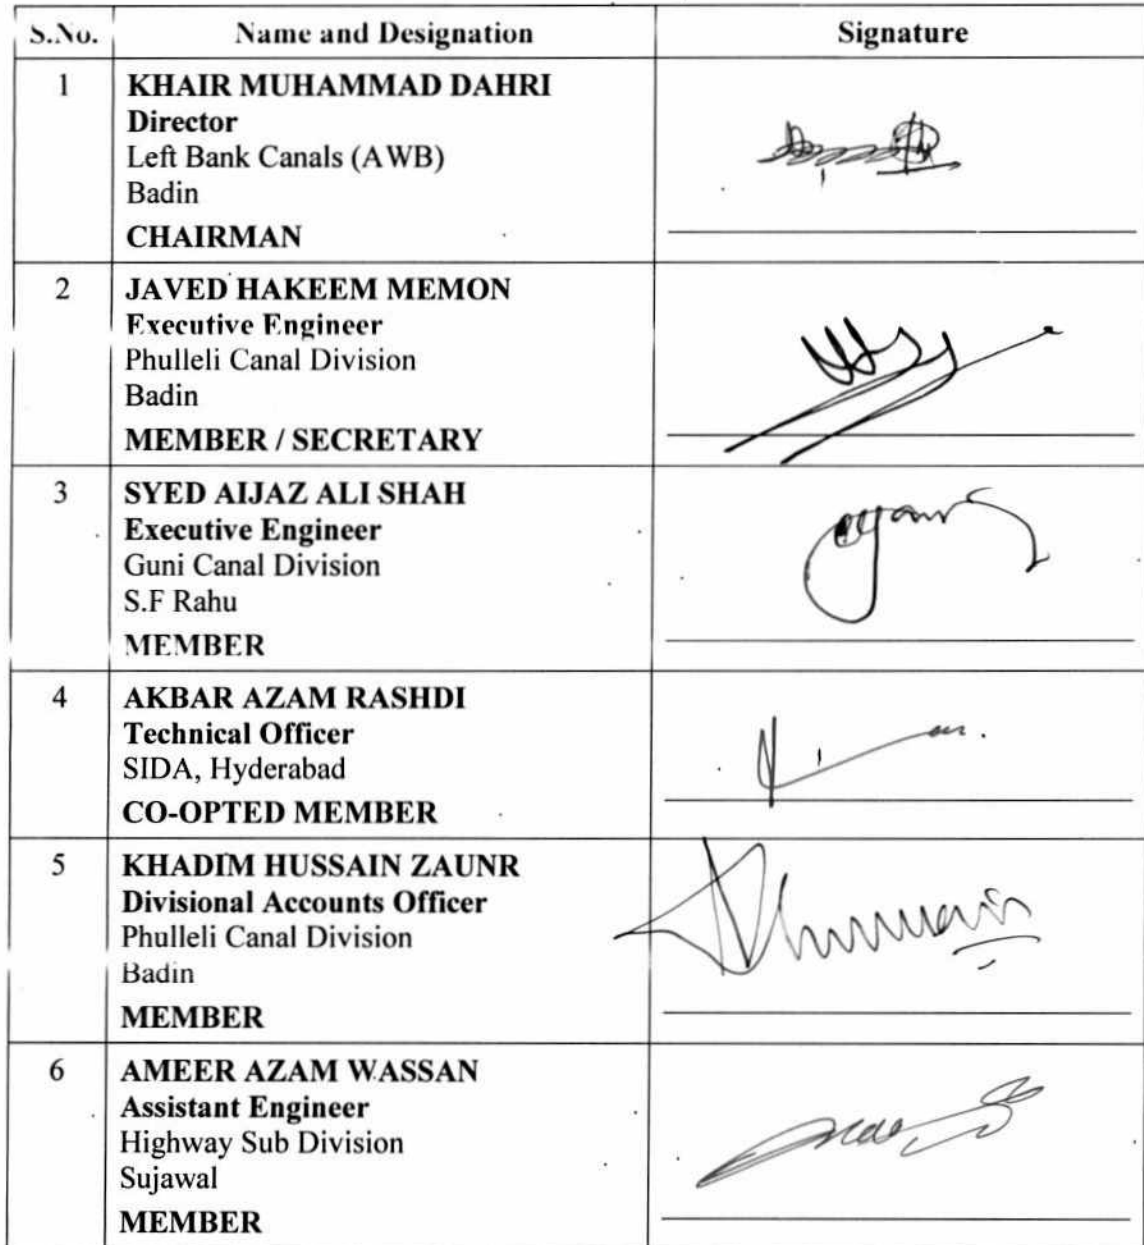 S.No. Name and Designation Signature
1 KHAIR MUHAMMAD DAHRI
Director
Left Bank Canals (AWB)
Badin
CHAIRMAN
2 JAVED HAKEEM MEMON
Executive Engineer
Phulleli Canal Division
Badin
MEMBER / SECRETARY
3 SYED AIJAZ ALI SHAH
Executive Engineer
Guni Canal Division
S.F Rahu
MEMBER
4 AKBAR AZAM RASHDI
Technical Officer
SIDA, Hyderabad
CO-OPTED MEMBER
5 KHADIM HUSSAIN ZAUNR
Divisional Accounts Officer
Phulleli Canal Division
Badin
MEMBER
6 AMEER AZAM WASSAN
Assistant Engineer
Highway Sub Division
Sujawal
MEMBER